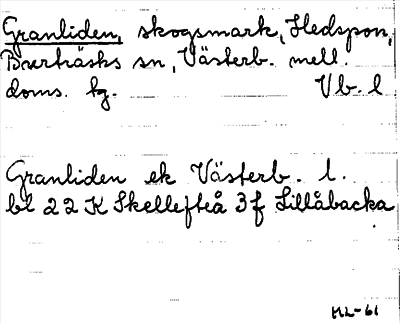 Granliden, skogsmark, Hedspon,
Burträsks sn, Västerb. mell.
doms. kg. Vb. l
Granliden ek Västerb. l.
bl 22 K Skellefteå 3f Lillåbacka
HL-61